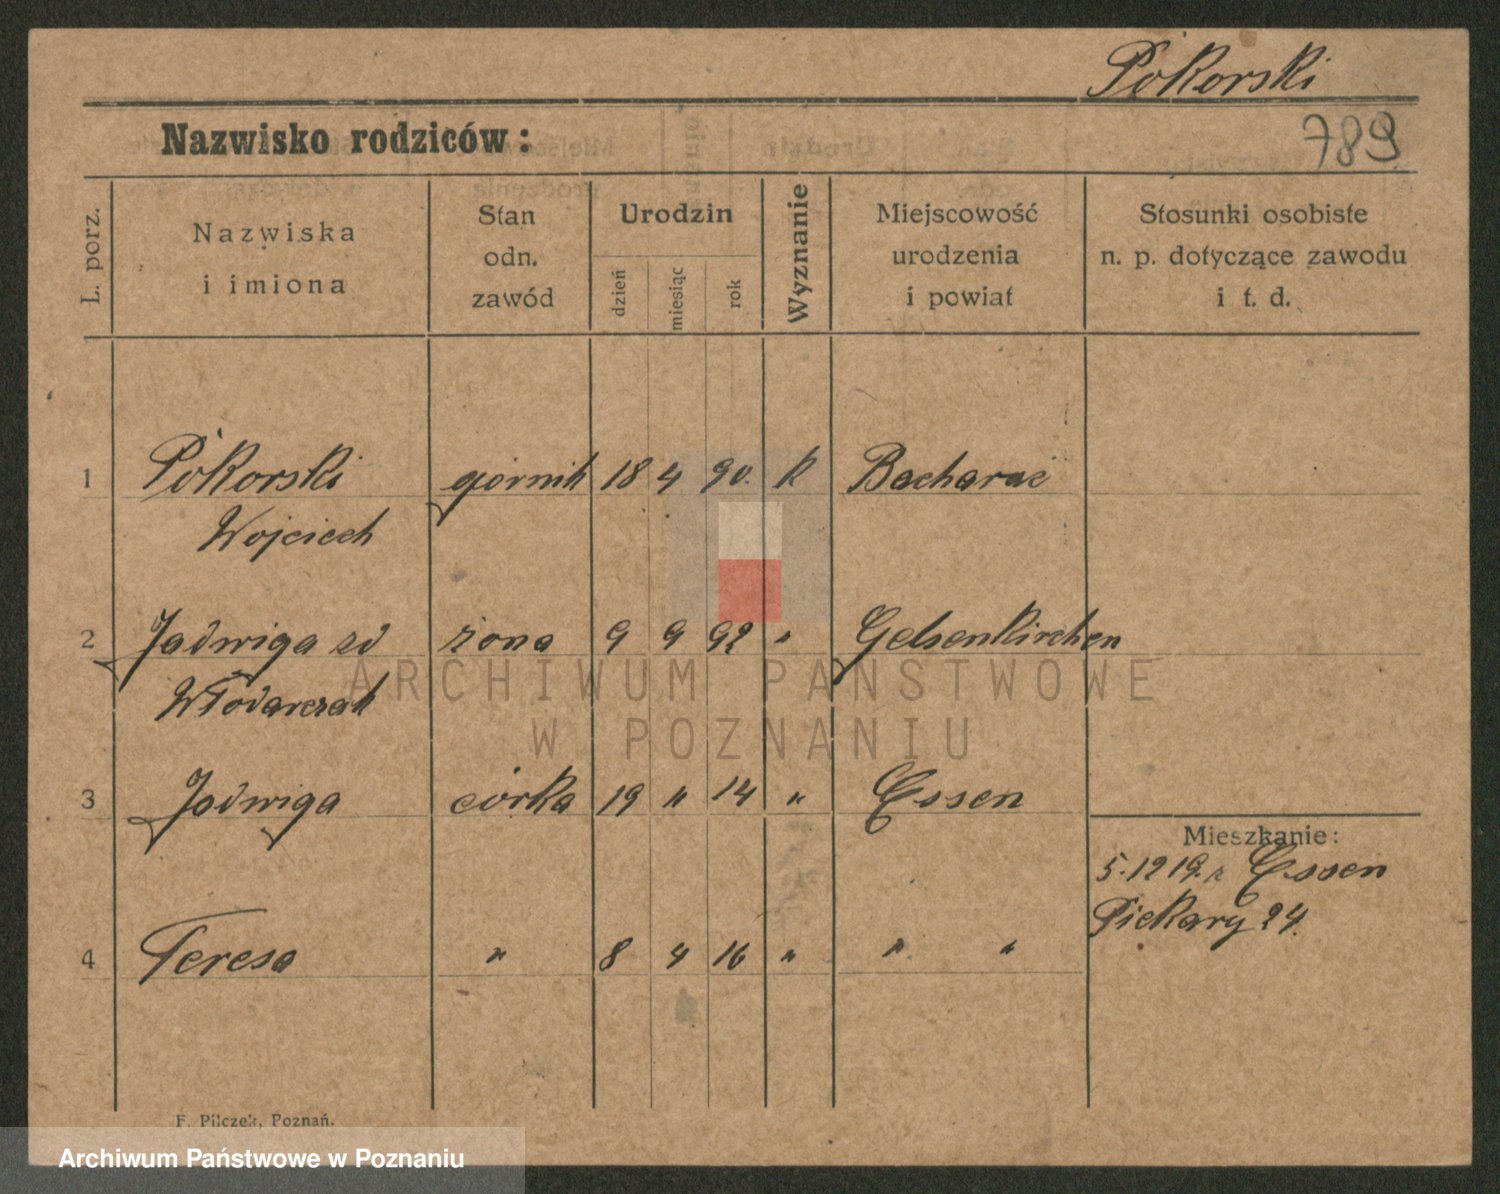 Pokorski
Nazwisko rodziców:
789
L. porz.
Nazwiska
i imiona
Stan
odn.
zawód
Urodzin
dzień
miesiąc
rok
Wyznanie
Miejscowość
urodzenia
i powiat
Stosunki osobiste
n. p. dotyczące zawodu
i t. d.
1 Pokorski górnik 18 4 90. k Bacharac
Wojciech
2 Jadwiga zd żona 9 9 92 " Gelsenkirchen
Włodarczak
3 Jadwiga córka 19 " 14 " Essen
Mieszkanie:
5.12 19. z Essen
Piekary 24.
4 Teresa " 8 4 16 " " "
F. Pilczek, Poznań.
ARCHIWUM PAŃSTWOWE
W POZNANIU
Archiwum Państwowe w Poznaniu